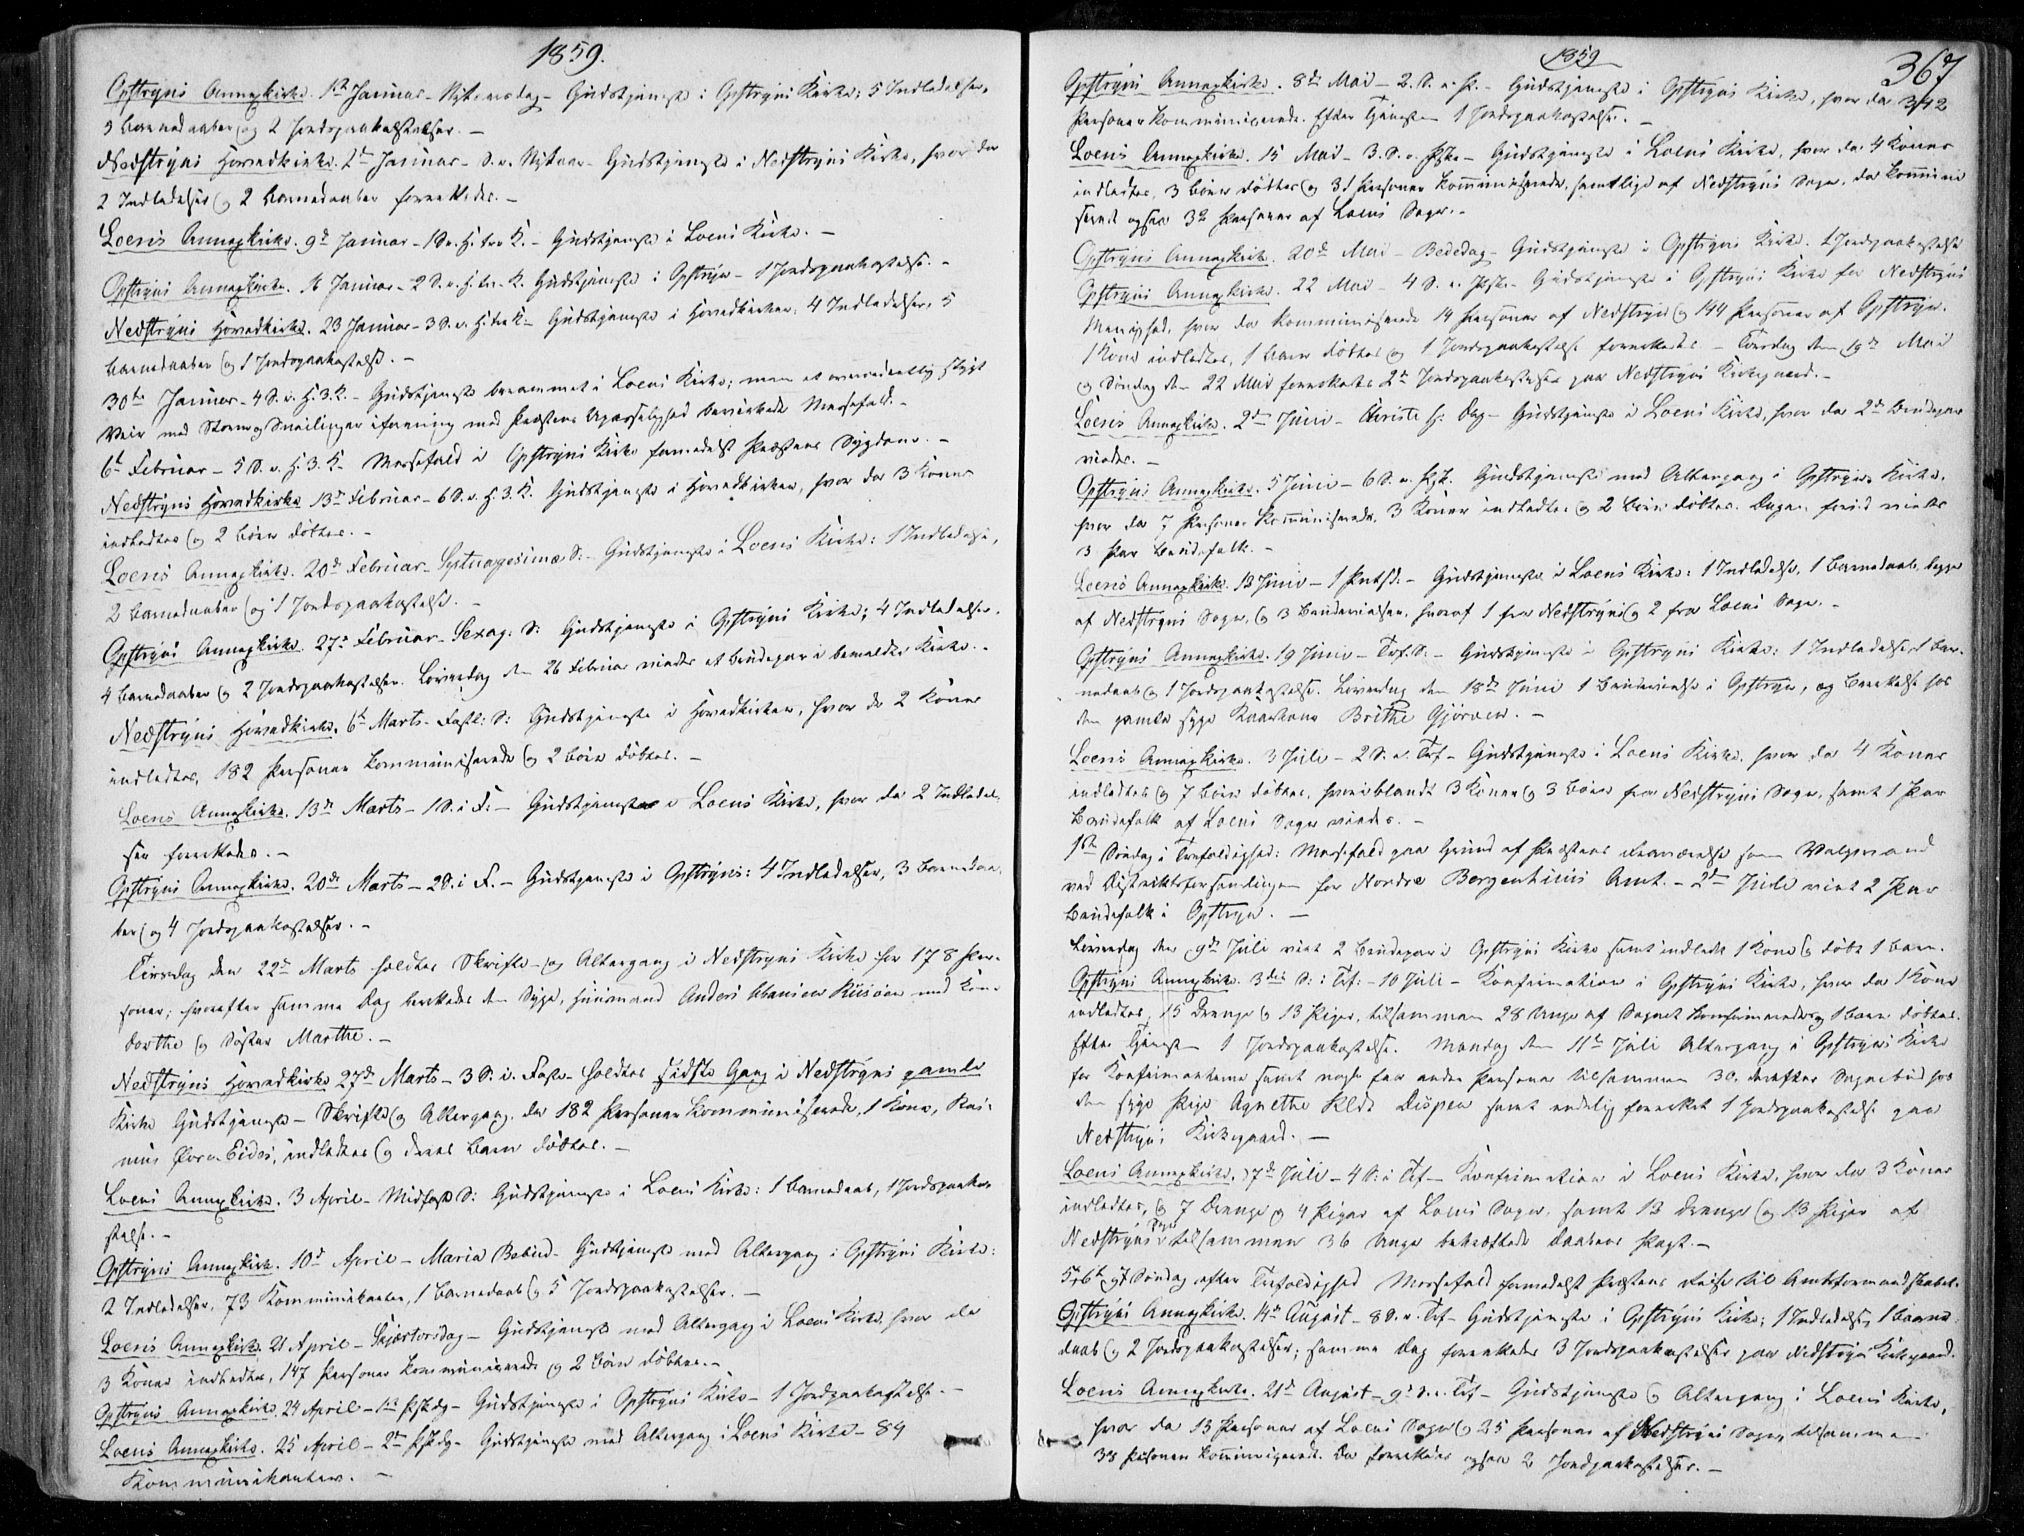 1859.
Opstryns Annexkirke. 1ste Januar - Nytaarsdag - Gudstjeneste i Opstryns Kirke; 5 Indledelser,
3 Barnedaaber og 2 Jordspaakastelser. -
Nedstryns Hovedkirke. 2den Januar - S. e. Nytaar - Gudstjeneste i Nedstryns Kirke, hvor der
2 Indledelser og 2 Barnedaaber forrettedes. -
Loens Annexkirke. 9de Januar - 1 S. e. H. tre K. - Gudstjeneste i Loens Kirke. -
Opstryns Annexkirke. 16 Januar - 2 S. e. H. tre K. Gudstjeneste i Opstryn - 1 Jordspaakastelse. -
Nedstryns Hovedkirke. 23 Januar - 3 S. e. H. tre K. - Gudstjeneste i Hovedkirken, 4 Indledelser, 5
Barnedaaber og 1 Jordspaakastelse. -
30te Januar - 4 S. e. H. 3. K. - Gudstjeneste berammet i Loens Kirke; men et overordentlig stygt
Veir med Storm og Sneilinger i forening med Præstens Upasselighed bevirkede Messefald. -
6te Februar - 5 S. e. H. 3. K. Messefald i Opstryns Kirke formedelst Præstens Sygdom. -
Nedstryns Hovedkirke 13de Februar - 6 S. e. H. 3. K. Gudstjeneste i Hovedkirken, hvor der 3 Koner
indledtes og 2 Børn døbtes. -
Loens Annexkirke. 20de Februar - Septuagesima S: - Gudstjeneste i Loens Kirke: 1 Indledelse,
2 Barnedaaber og 1 Jordspaakastelse. -
Opstryns Annexkirke. 27de Februar - Sexag: S: Gudstjeneste i Opstryns Kirke; 4 Indledelser,
4 Barnedaaber og 2 Jordspaakastelser. Løverdag den 26 Februar viedes et Brudepar i bemeldte Kirke. -
Nedstryns Hovedkirke. 6te Marts - Fastl: S: Gudstjeneste i Hovedkirken, hvor de 2 Koner
indledtes, 182 Personer kommunicerede og 2 Børn døbtes. -
Loens Annexkirke. 13de Marts - 1 S. i F. - Gudstjeneste i Loens Kirke, hvor der 2 Indledel-
ser forrettedes. -
Opstryns Annexkirke. 20de Marts - 2 S. i F. - Gudstjeneste i Opstryns: 4 Indledelser, 3 Barnedaa-
ber og 4 Jordspaakastelser. -
Tirsdag den 22de Marts holdtes Skrifte- og Altergang i Nedstryns Kirke for 178 Per-
soner; hvorefter samme Dag berettedes den Syge, Huusmand Anders Kone
Dorthe og Søster Marthe. -
Nedstryns Hovedkirke 27de Marts - 3 S. i. Faste - holdtes sidste Gang i Nedstryns gamle
Kirke Gudstjeneste - Skrifte og Altergang, der 182 Personer kommunicerede, 1 Kone, Ras-
mus Eides, indledtes og deres Barn døbtes. -
Loens Annexkirke. 3 April - Midfaste S: Gudstjeneste i Loens Kirke: 1 Barnedaab, 1 Jordspaaka-
stelse. -
Opstryns Annexkirke. 10de April - Maria Bebud - Gudstjeneste med Altergang i Opstryns Kirke:
2 Indledelser, 73 Kommunikanter, 1 Barnedaab og 5 Jordspaakastelser. -
Loens Annexkirke. 21 April - Skjærtorsdag - Gudstjeneste med Altergang i Loens Kirke hvor der
3 Koner indledtes, 147 Personer kommunicerede og 2 Børn døbtes. -
Opstryns Annexkirke. 24 April - 1ste Pskdg - Gudstjeneste i Opstryns Kirke - 1 Jordspaakastelse. -
Loens Annexkirke. 25 April - 2den Pskdg - Gudstjeneste med Altergang i Loens Kirke - 84
Kommunikanter. -
1859
367
Opstryns Annexkirke. 8de Mai - 2. S. e. P. - Gudstjeneste i Opstryns Kirke, hvor der 342
Personer kommunicerede. Efter Tjenesten 1 Jordspaakastelse. -
Loens Annexkirke. 15 Mai - 3. S. e. Pske - Gudstjeneste i Loens Kirke, hvor der 4 Koner
indledtes, 3 Børn døbtes og Personer kommunicerede, samtlige af Nedstryns Sogn, der kommuni-
cerede ogsaa 32 Personer af Loens Sogn. -
Opstryns Annexkirke. 20de Mai - Bededag - Gudstjeneste i Opstryns Kirke. 1 Jordspaakastelse
Opstryns Annexkirke. 22 Mai - 4 S. e. Pske - Gudstjeneste i Opstryns Kirke for Nedstryns
Menighed, hvor der kommunicerede 14 Personer af Nedstryn og 144 Personer af Opstryn.
1 Kone indledtes, 1 Barn døbtes og 1 Jordspaakastelse forrettedes - Torsdag den 19de Mai
og Søndag den 22 Mai forrettedes 2de Jordspaakastelser paa Nedstryns Kirkegaard. -
Loens Annexkirke. 2den Juni - Christi H: Dag - Gudstjeneste i Loens Kirke, hvor der 2de Brudepar
viedes. -
Opstryns Annexkirke. 5 Juni - 6 S. e. Psk. Gudstjeneste med Altergang i Opstryns Kirke,
hvor der 7 Personer kommunicerede, 3 Koner indledtes og 2 Børn døbtes. Dagen forud viedes
3 Par Brudefolk. -
Loens Annexkirke 12 Juni - 1 Pntsd. - Gudstjeneste i Loens Kirke: 1 Indledelse, 1 Barnedaab, begge
af Nedstryns Sogn, og 3 Brudevielser, hvoraf 1 fra Nedstryns og 2 fra Loens Sogn. -
Opstryns Annexkirke. 19 Juni - Tref. S. - Gudstjeneste i Opstryns Kirke: 1 Indledelse, 1 Bar-
nedaab og 1 Jordspaakastelse. Løverdag den 18de Juni 1 Brudevielse i Opstryn, og Berettelse hos
den gamle syge Kaarkone Brithe Gjørven. -
Loens Annexkirke. 3 Juli - 2 S. e. Tref - Gudstjeneste i Loens Kirke, hvor der 4 Koner
indledtes og 7 Børn døbtes, hvoriblandt 3 Koner og 3 Børn fra Nedstryns Sogn, samt 1 Par
Brudefolk af Loens Sogn viedes. -
Søndag i Trefoldighed: Messefald paa Grund af Præstens Fraværelse som Valgmand
ved Distriktsforsamlingen for Nordre Bergenhuus Amt. - 2den Juli viet 2 Par
Brudefolk i Opstryn. -
Løverdag den 9de Juli viet 2 Brudepar i Opstryns Kirke samt indledt 1 Kone og døbt 1 Barn.
Opstryns Annexkirke. 3die S: i Tref: - 10 Juli - Konfirmation i Opstryns Kirke, hvor der 1 Kone
indledtes, 15 Drenge og 13 Piger, tilsammen 28 Unge af Sognet konfirmeredes og 1 Barn døbtes.
Efter Tjenesten 1 Jordspaakastelse. Mandag den 11te Juli Altergang i Opstryns Kirke
for Konfirmanterne samt nogle faa andre Personer tilsammen 30, derefter Sognebud hos
den syge Pige Agnethe samt endelig forrettet 1 Jordspaakastelse paa
Nedstryns Kirkegaard. -
Loens Annexkirke, 17de Juli - 4 S: i Tref - Konfirmation i Loens Kirke, hvor der 3 Koner
indledtes, og 7 Drenge og 4 Piger af Loens Sogn, samt 12 Drenge og 13 Piger af
Nedstryns Sogn tilsammen 36 Unge bekræftede Daabens Pagt. -
5te, 6te, og 7de Søndag efter Trefoldighed Messefald formedelst Præstens Reise til Amtsformandskabet.
Opstryns Annexkirke. 14de August - 8 S. e. Tref - Gudstjeneste i Opstryns Kirke; 1 Indledelse, 1 Barne-
daab og 2 Jordspaakastelser; samme Dag forrettedes 3 Jordspaakastelser paa Nedstryns Kirkegaard.
Loens Annexkirke. 21de August - 9de S. e. Tref - Gudstjeneste og Altergang i Loens Kirke,
hvor der 13 Personer af Loens Sogn og 25 Personer af Nedstryns Sogn, tilsammen
38 Personer kommunicerede. Der forrettedes ogsaa 2 Jordspaakastelser. -